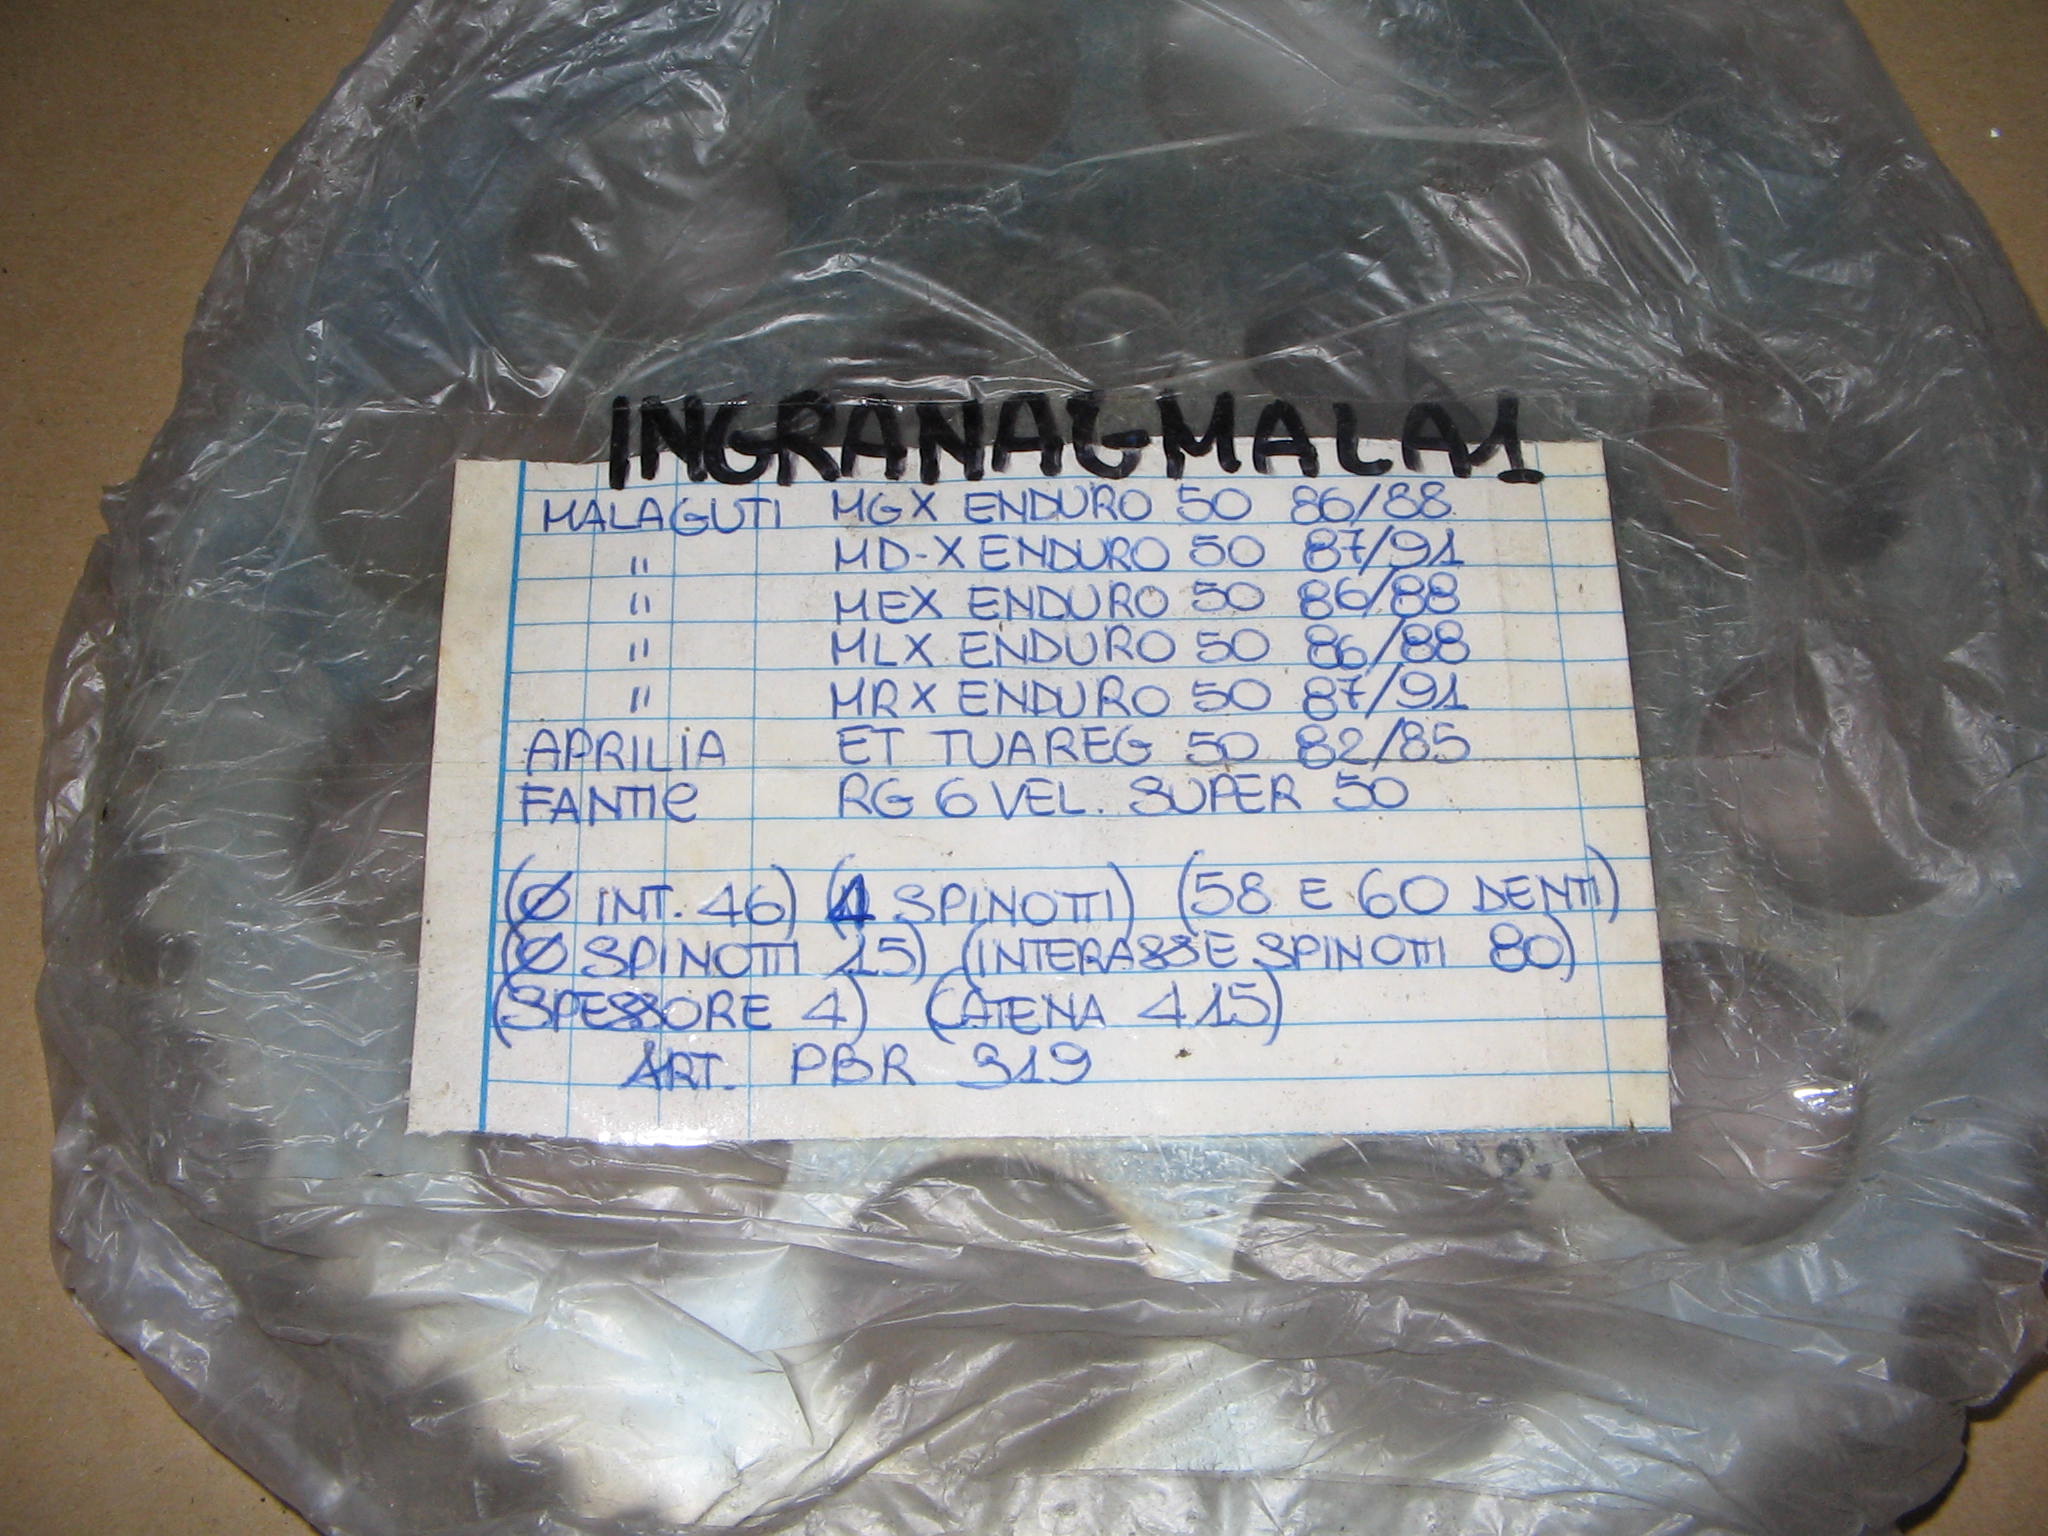 INGRANAGMALA1
MALAGUTI MGX ENDURO 50 86/88
" MD-X ENDURO 50 87/91
" MEX ENDURO 50 86/88
" MLX ENDURO 50 86/88
" MRX ENDURO 50 87/91
APRILIA ET TUAREG 50 82/85
FANTIC RG 6 VEL. SUPER 50
(Ø INT. 46) (4 SPINOTTI) (58 E 60 DENTI)
(Ø SPINOTTI 15) (INTERASSE SPINOTTI 80)
(SPESSORE 4) (CATENA 415)
ART. PBR 319